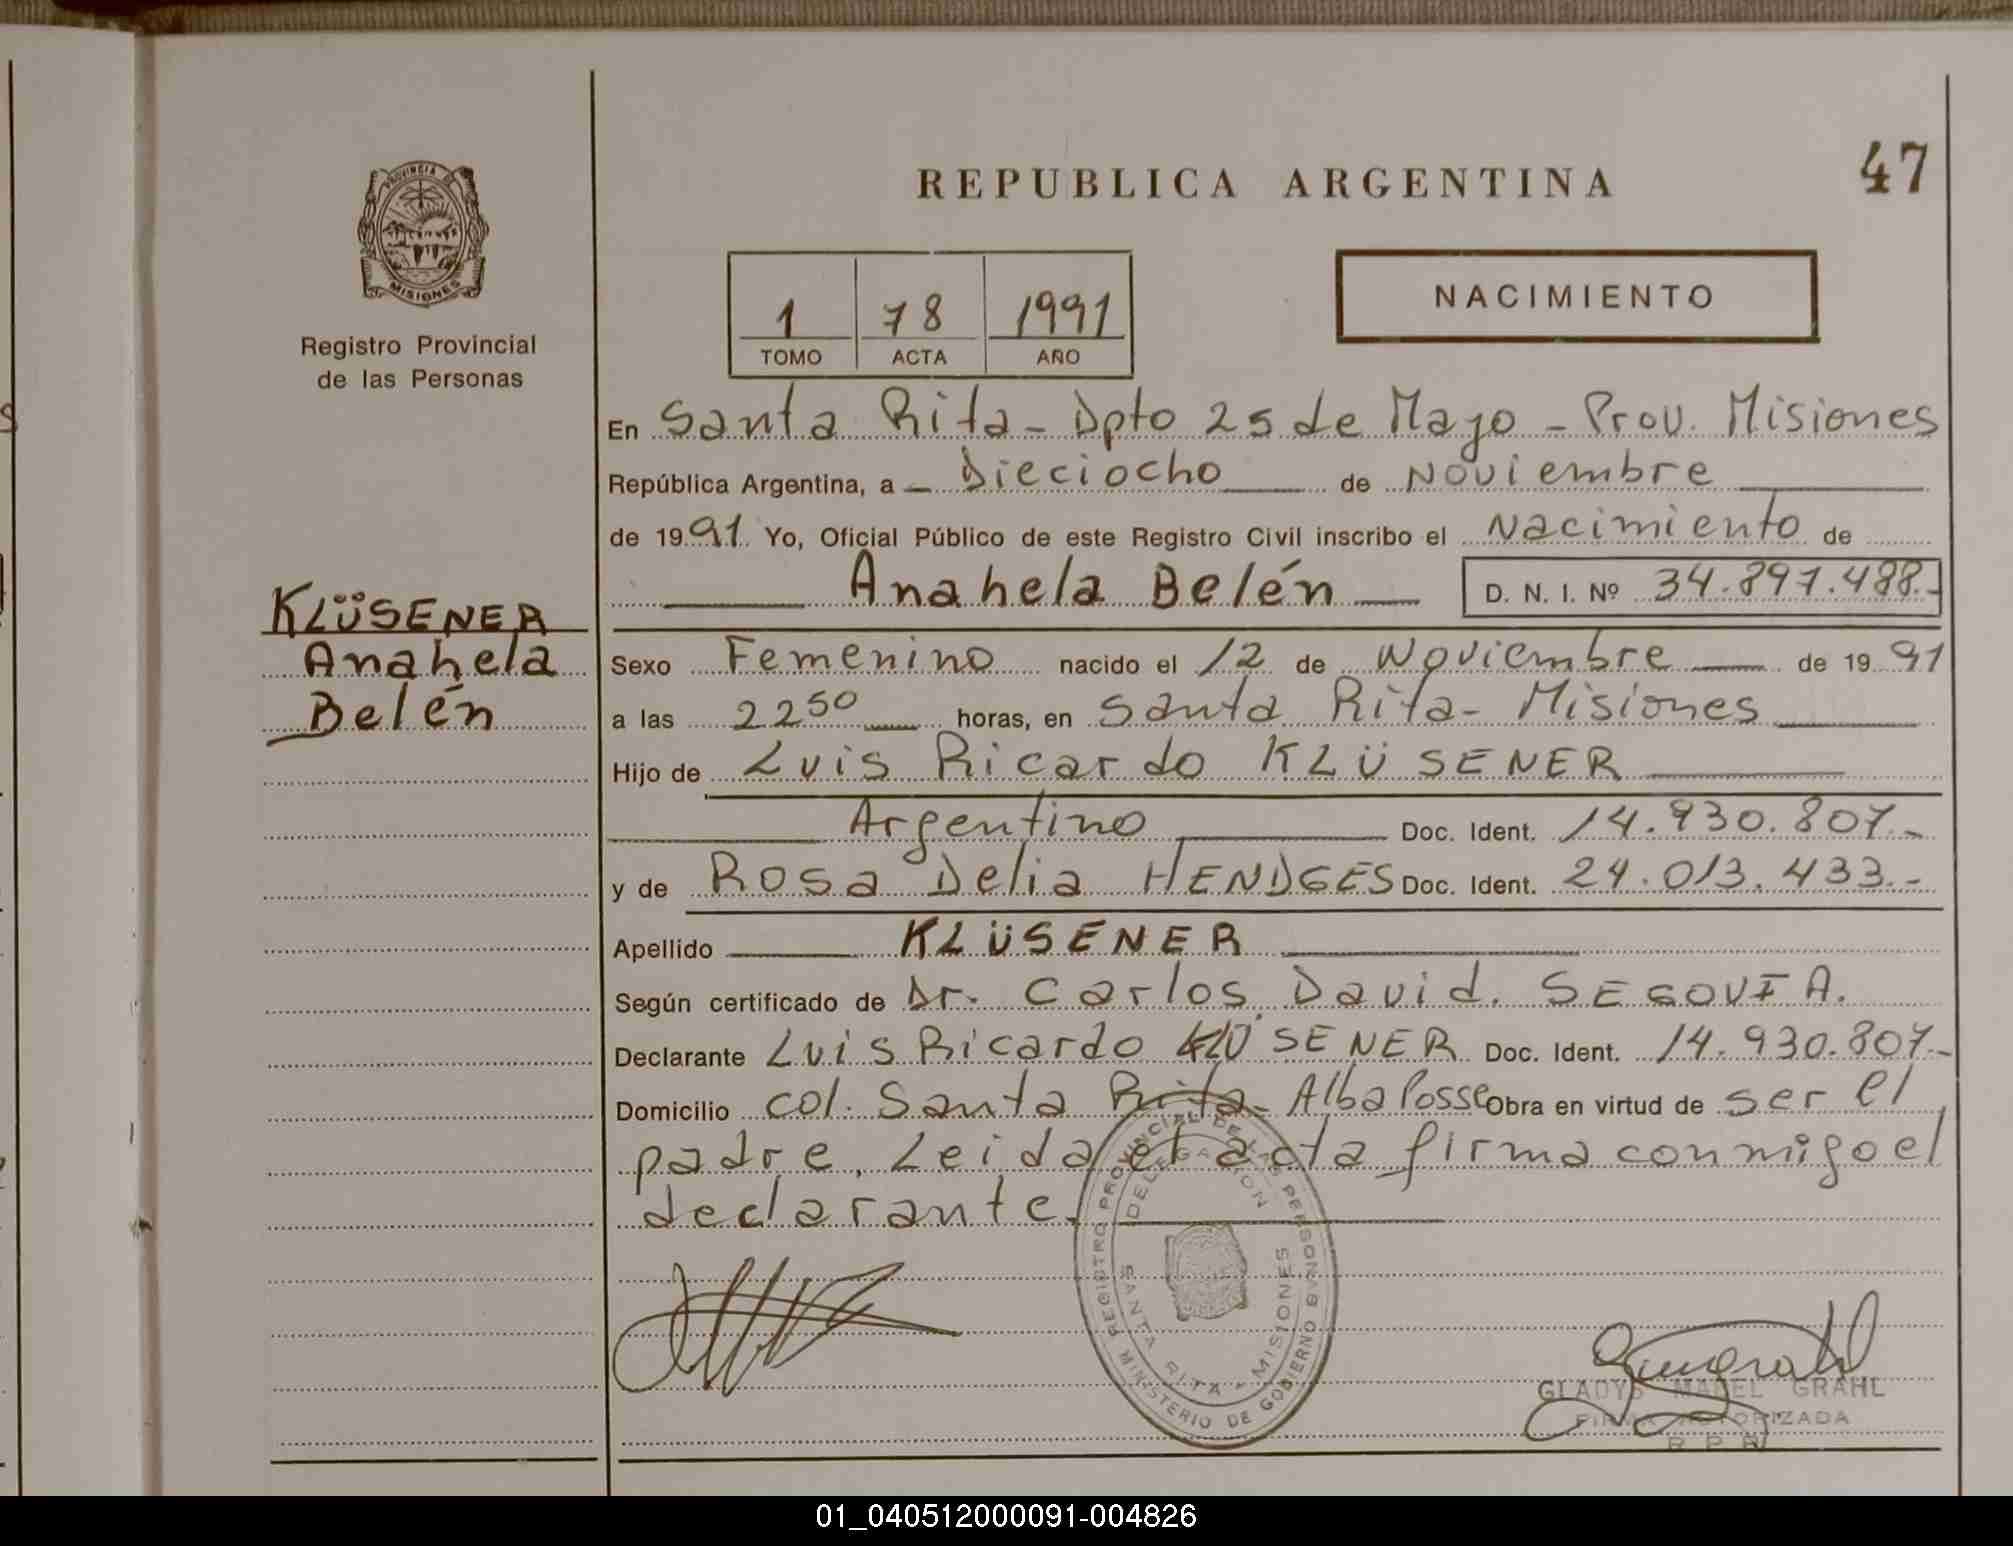 REPUBLICA ARGENTINA
47
PROVINCIA DE
MISIONES
Registro Provincial
de las Personas
1 78 1991
TOMO ACTA AÑO
NACIMIENTO
En Santa Rita - Dpto 25 de Mayo - Prov. Misiones
República Argentina, a - Dieciocho de Noviembre
de 1991. Yo, Oficial Público de este Registro Civil inscribo el Nacimiento de
Anahela Belén D. N. I. Nº 34.897.488.-
KLÜSENER
Anahela
Belén
Sexo Femenino nacido el 12 de Noviembre de 1991
a las 22 50 horas, en Santa Rita - Misiones
Hijo de Luis Ricardo KLÜSENER
Argentino Doc. Ident. 14.930.807.-
y de Rosa Delia HENDGES Doc. Ident. 24.013.433.-
Apellido KLÜSENER
Según certificado de Dr. Carlos David. SEGOVIA.
Declarante Luis Ricardo KLÜSENER Doc. Ident. 14.930.807.-
Domicilio col. Santa Rita - Alba Posse Obra en virtud de ser el
padre. Leida el acta firma conmigo el
declarante.
REGISTRO PROVINCIAL DE LAS PERSONAS
MINISTERIO DE GOBIERNO
DELEGACION
SANTA RITA - MISIONES
GLADYS MABEL GRAHL
FIRMA AUTORIZADA
R P P
01_040512000091-004826